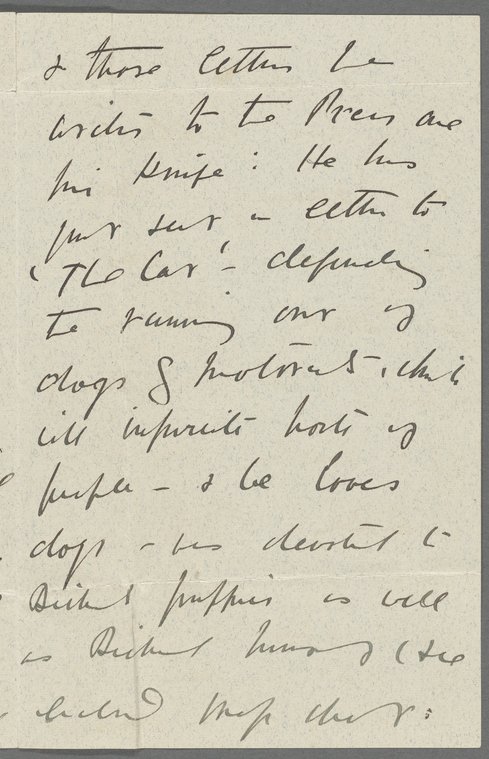 & those letters he
writes to the Press are
his knife: He has
just sent a letter to
'The Car' - defending
the running over of
dogs by motorists, which
will infuriate hosts of
people - & he loves
dogs - was devoted to
puppies as well
as himself (see
snap shot: